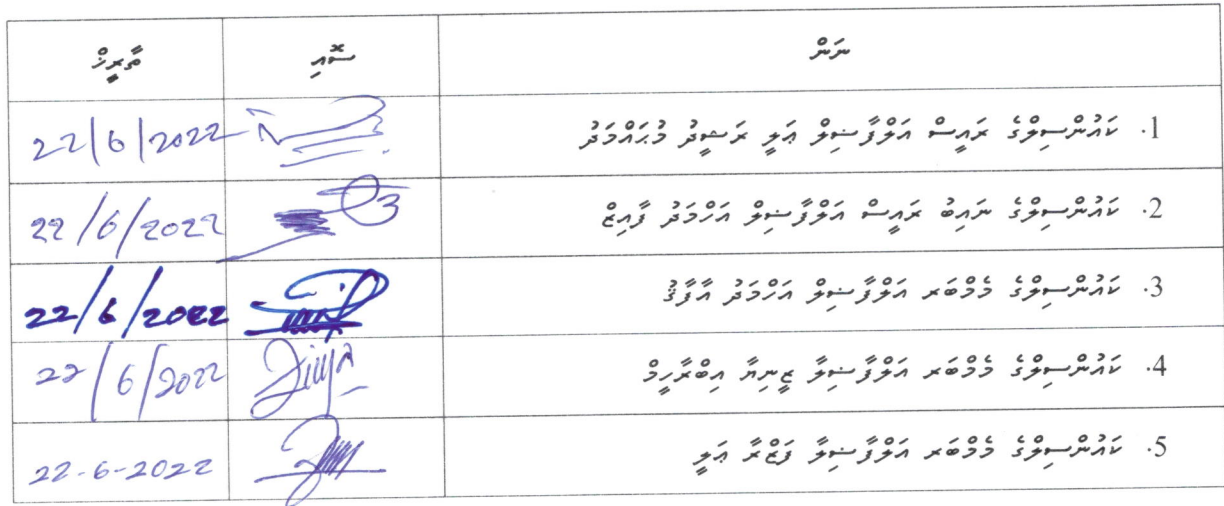 ނަން ސޮއި ތާރީޚް
1. ކައުންސިލްގެ ރައީސް އަލްފާޟިލް ޢަލީ ރަޝީދު މުޙައްމަދު 22/6/2022
2. ކައުންސިލްގެ ނައިބު ރައީސް އަލްފާޟިލް އަހްމަދު ފާއިޒް 22/6/2022
3. ކައުންސިލްގެ މެމްބަރ އަލްފާޟިލް އަހްމަދު އާފާޤު 22/6/2022
4. ކައުންސިލްގެ މެމްބަރ އަލްފާޟިލާ ޒީނިޔާ އިބްރާހީމް 22/6/2022
5. ކައުންސިލްގެ މެމްބަރ އަލްފާޟިލާ ފަޒްރާ ޢަލީ 22-6-2022